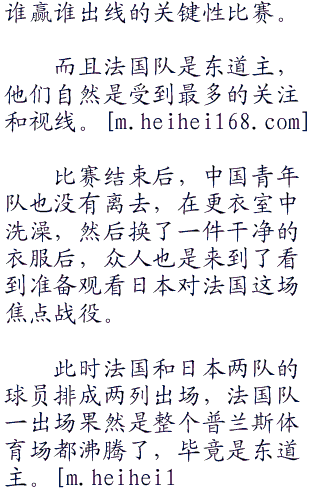 谁赢谁出线的关键性比赛。
而且法国队是东道主，
他们自然是受到最多的关注
和视线。[m.heihei168.com]
比赛结束后，中国青年
队也没有离去，在更衣室中
洗澡，然后换了一件干净的
衣服后，众人也是来到了看
到准备观看日本对法国这场
焦点战役。
此时法国和日本两队的
球员排成两列出场，法国队
一出场果然是整个普兰斯体
育场都沸腾了，毕竟是东道
主。[m.heihei1